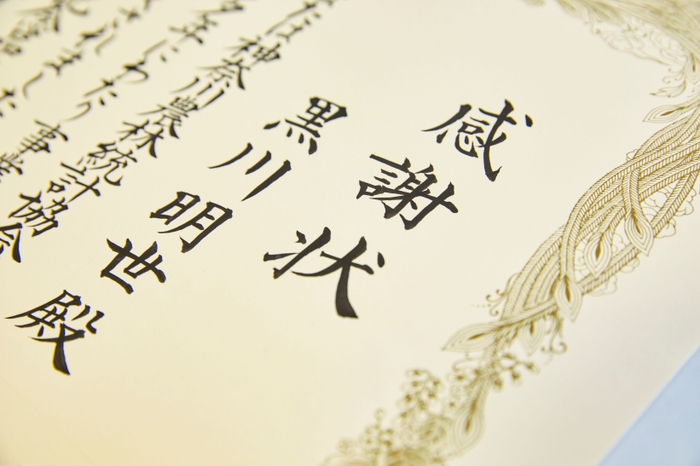 感謝状
黒川明世殿
たは神奈川農林統計協会
年にわたり事業
ました